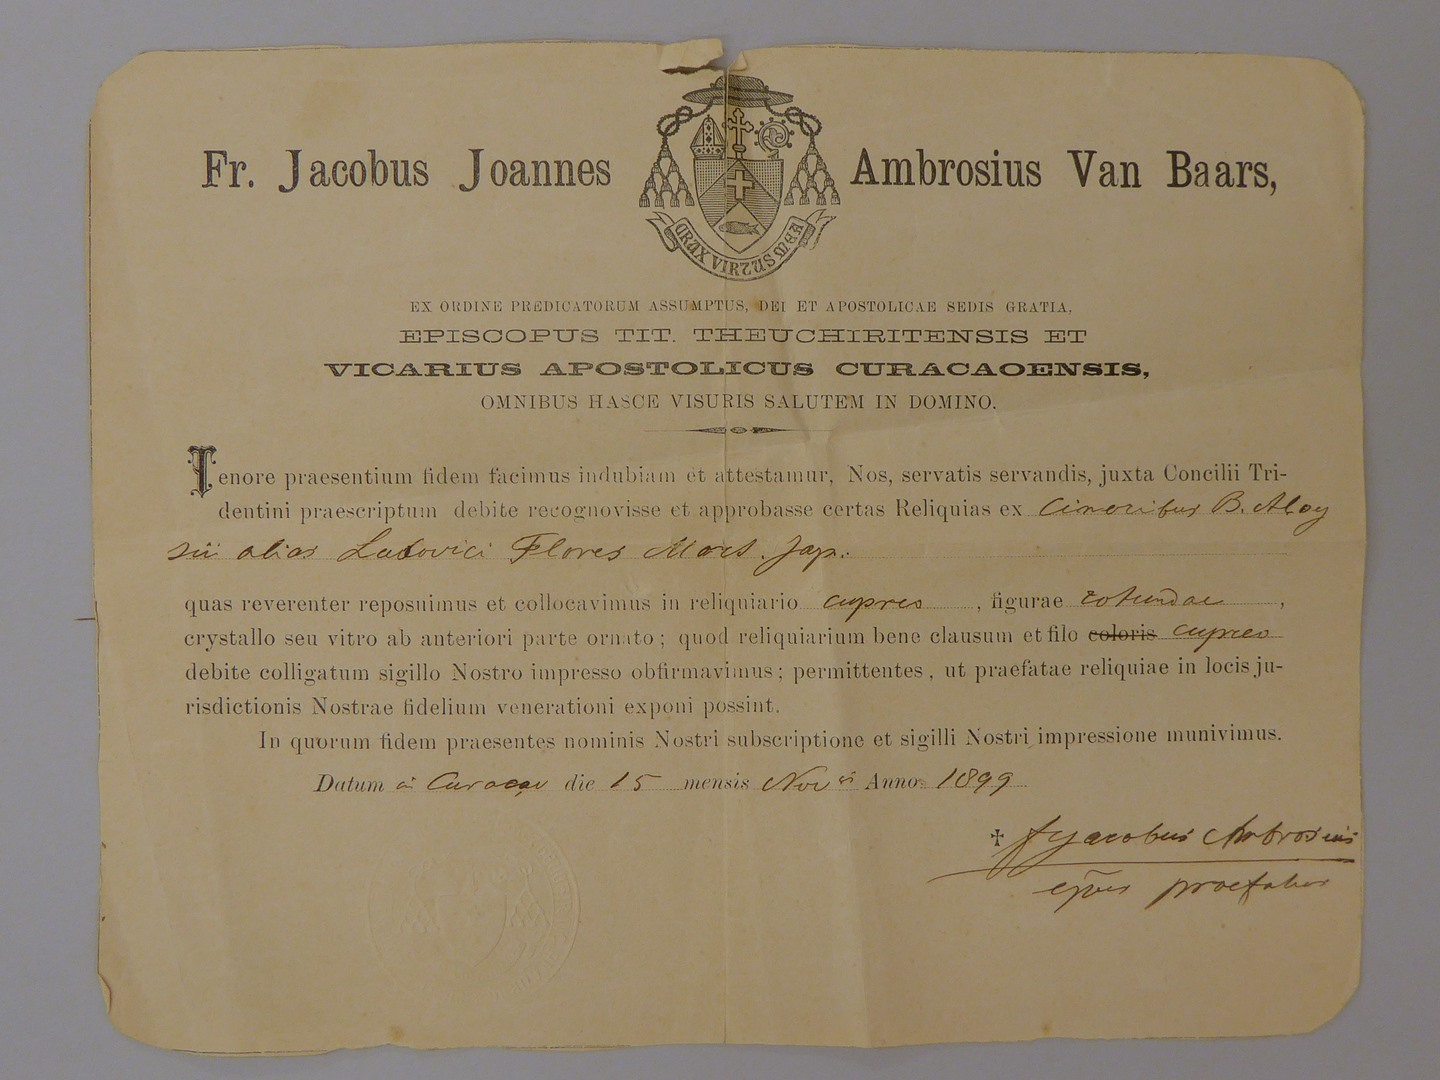 Fr. Jacobus Joannes Ambrosius Van Baars,
CRUX VIRTUS MEA
EX ORDINE PREDICATORUM ASSUMPTUS, DEI ET APOSTOLICAE SEDIS GRATIA,
EPISCOPUS TIT. THEUCHIRITENSIS ET
VICARIUS APOSTOLICUS CURACAOENSIS,
OMNIBUS HASCE VISURIS SALUTEM IN DOMINO.
Tenore praesentium fidem facimus indubiam et attestamur, Nos, servatis servandis, juxta Concilii Tri-
dentini praescriptum debite recognovisse et approbasse certas Reliquias ex Cineribus B. Aloy
sii alias Ludovici Flores Mart. Jap.
quas reverenter reposuimus et collocavimus in reliquiario cupreo, figurae rotundae,
crystallo seu vitro ab anteriori parte ornato; quod reliquiarium bene clausum et filo coloris cupreo
debite colligatum sigillo Nostro impresso obfirmavimus; permittentes, ut praefatae reliquiae in locis ju-
risdictionis Nostrae fidelium venerationi exponi possint.
In quorum fidem praesentes nominis Nostri subscriptione et sigilli Nostri impressione munivimus.
Datum in Curaçao die 15 mensis Novis Anno 1899
† fr Jacobus Ambrosius
epus praefatus